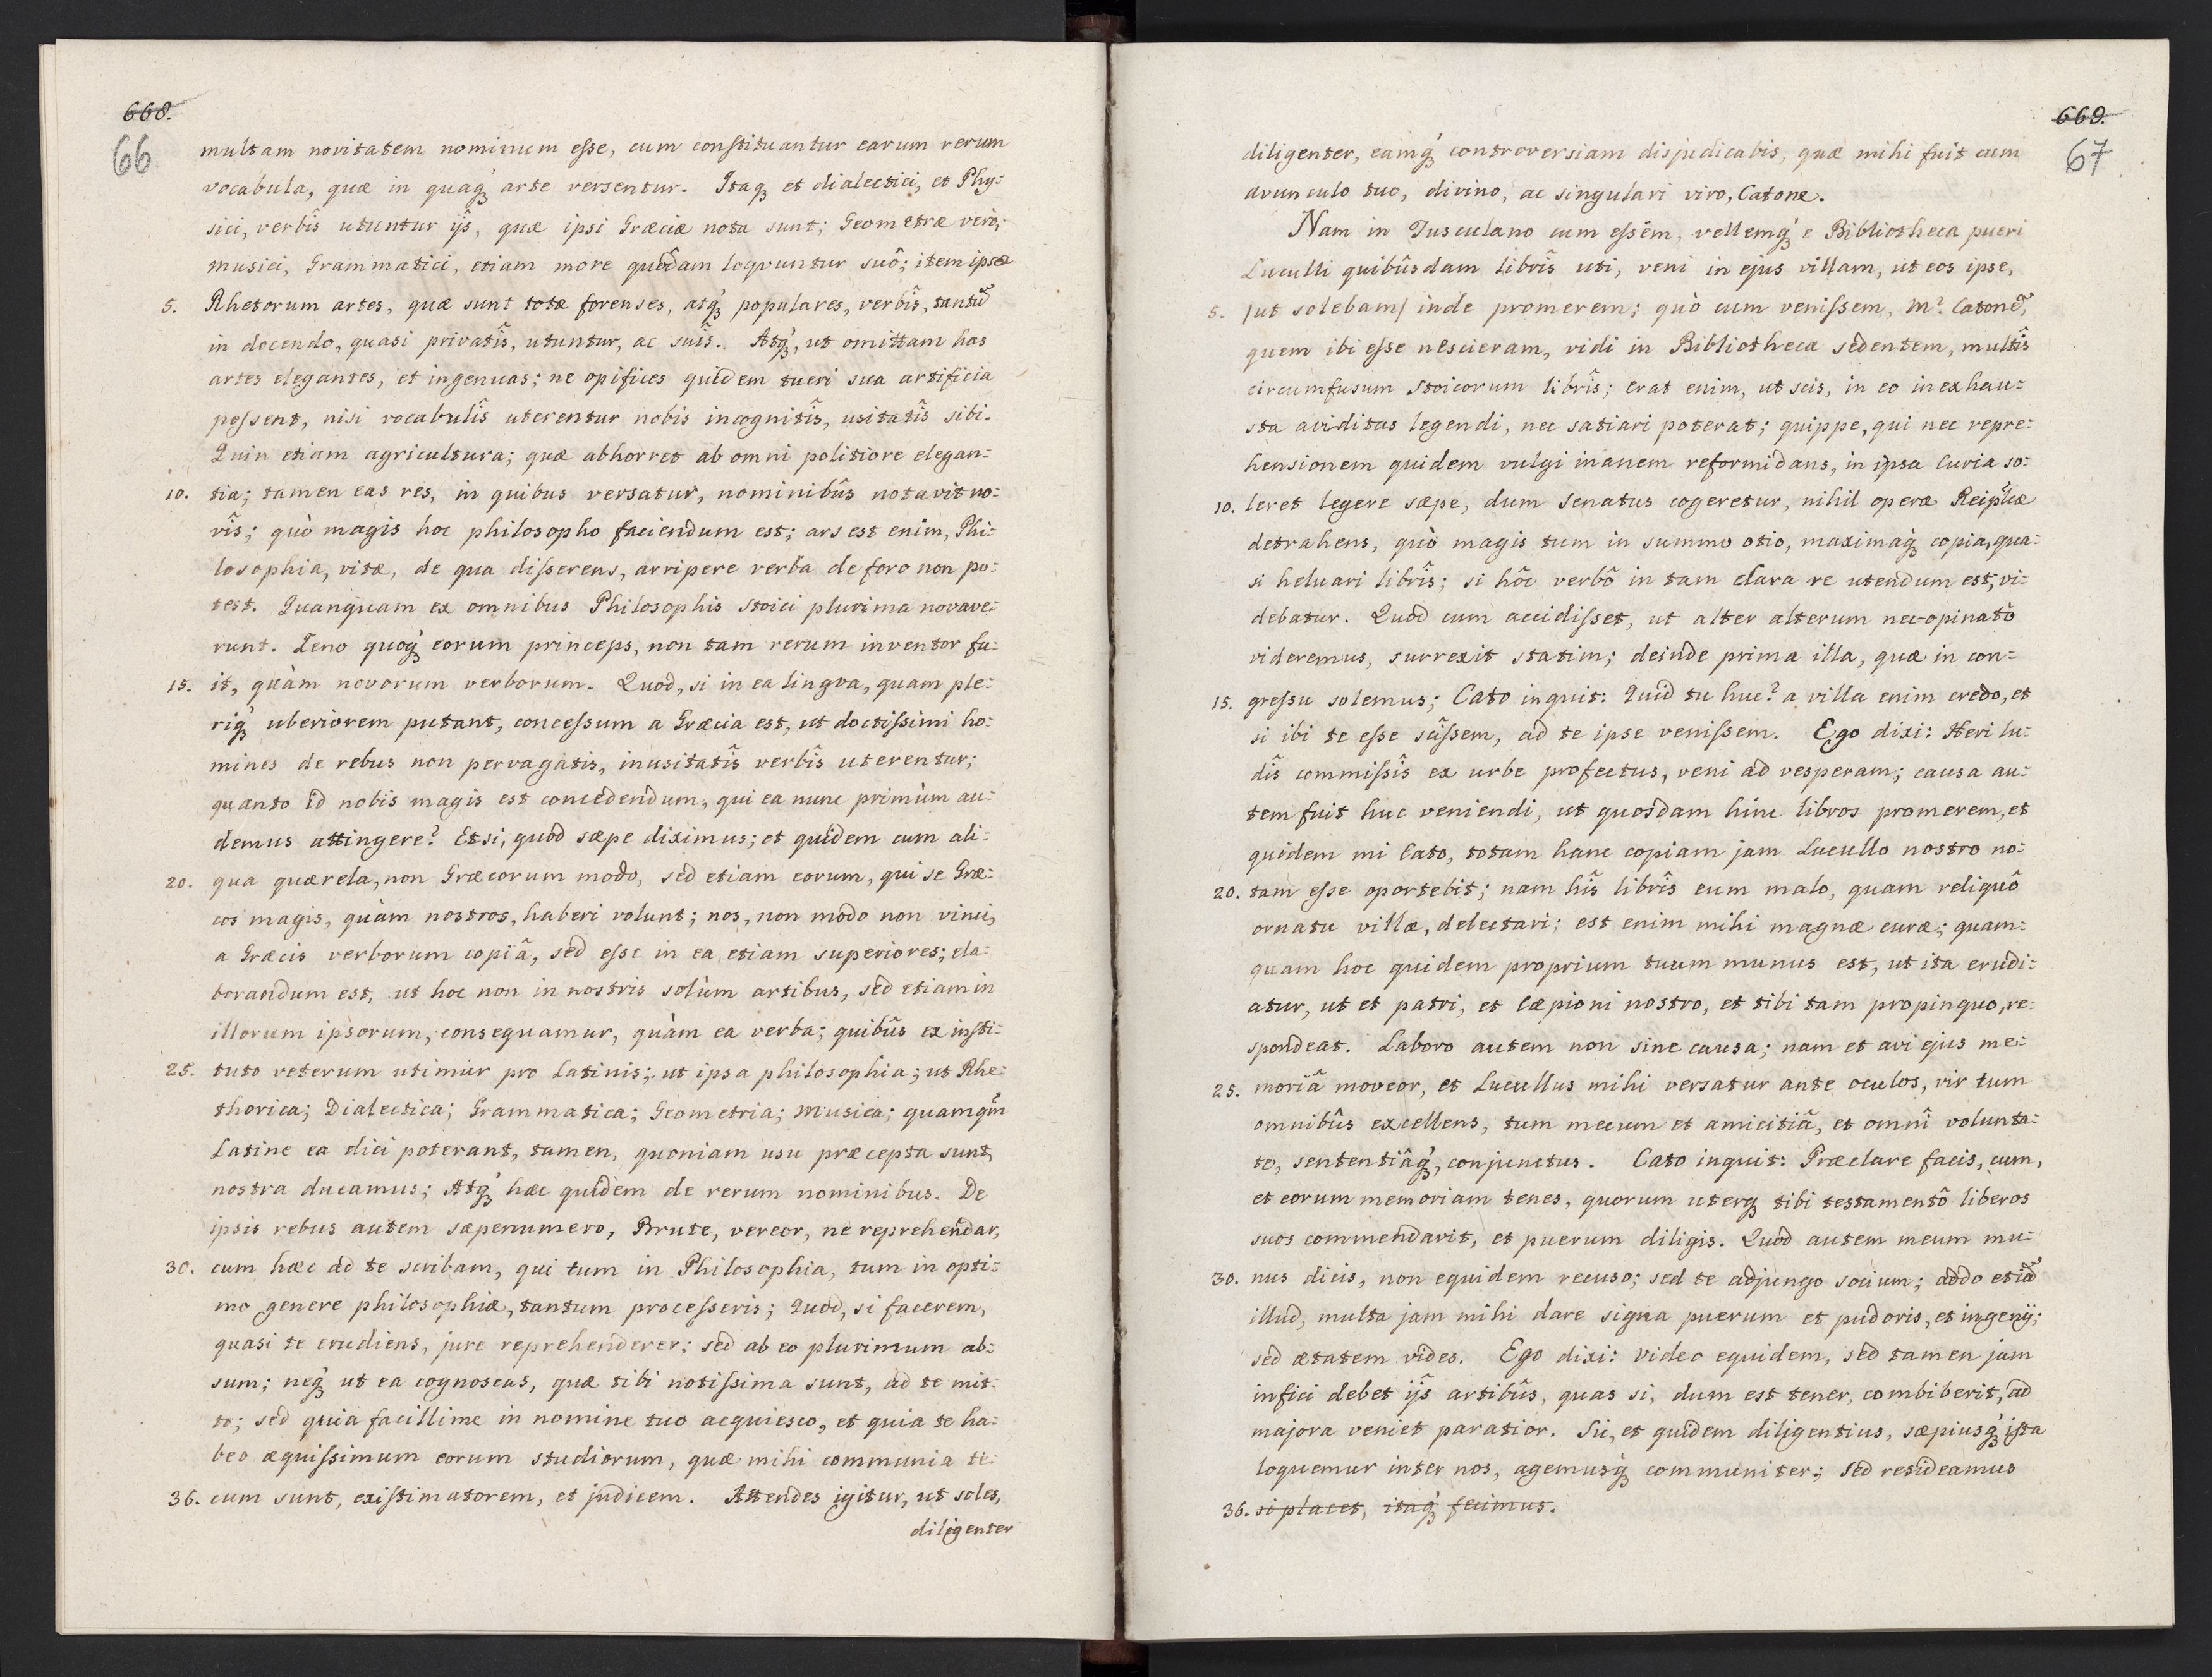 668.
66
multam novitatem nominum esse, cum constituantur earum rerum
vocabula, quæ in quaq́ꝫ arte versentur. Itaqꝫ et dialectici, et Phy=
sici, verbîs utuntur ijs, quæ ipsi Græciæ nota sunt; Geometræ verò,
musici, Grammatici, etiam more quôdam loqvuntur suô; item ipsæ
5. Rhetorum artes, quæ sunt totæ forenses, atq́ꝫ populares, verbîs, tantũ
in docendo, quasi privatîs, utuntur, ac suîs. Atq́ꝫ, ut omittam has
artes elegantes, et ingenuas; ne opifices quidem tueri sua artificia
possent, nisi vocabulîs uterentur nobis incognitîs, usitatîs sibi.
Quin etiam agricultura; quæ abhorret ab omni politiore elegan=
10. tia; tamen eas res, in quibus versatur, nominibûs notavit no=
vîs; quò magis hoc philosopho faciendum est; ars est enim, Phi=
losophia, vitæ, de qua disserens, arripere verba de foro non po=
test. Quanquam ex omnibus Philosophis Stoici plurima novave=
runt. Zeno quoq́ꝫ eorum princeps, non tam rerum inventor fu=
15. it, quàm novorum verborum. Quod, si in ea lingva, quam ple=
riq́ꝫ uberiorem putant, concessum a Græcia est, ut doctissimi ho=
mines de rebus non pervagatis, inusitatîs verbîs uterentur;
quanto id nobis magis est concedendum, qui ea nunc primùm au=
demus attingere? Etsi, quod sæpe diximus; et quidem cum ali=
20. qua quærela, non Græcorum modo, sed etiam eorum, qui se Græ=
cos magis, quàm nostros, haberi volunt; nos, non modo non vinci,
a Græcis verborum copiâ, sed esse in ea etiam superiores; ela=
borandum est, ut hoc non in nostris solùm artibus, sed etiam in
illorum ipsorum, consequamur, quàm ea verba; quibûs ex insti=
25. tuto veterum utimur pro Latinis; ut ipsa philosophia; ut Rhe=
thorica; Dialectica; Grammatica; Geometria; Musica; quamqũ
Latine ea dici poterant, tamen, quoniam usu præcepta sunt,
nostra ducamus; Atq́ꝫ hæc quidem de rerum nominibus. De
ipsis rebus autem sæpenumero, Brute, vereor, ne reprehendar,
30. cum hæc ad te scribam, qui tum in Philosophia, tum in opti=
mo genere philosophiæ, tantum processeris; Quod, si facerem,
quasi te erudiens, jure reprehenderer; sed ab eo plurimum ab=
sum; neq́ꝫ ut ea cognoscas, quæ tibi notissima sunt, ad te mit=
to; sed quia facillime in nomine tuo acquiesco, et quia te ha=
beo æquissimum eorum studiorum, quæ mihi communia te=
36. cum sunt, existimatorem, et judicem. Attendes igitur, ut soles,
diligenter
669.
67
diligenter, eamq́ꝫ controversiam disjudicabis, quæ mihi fuit cum
avunculo tuo, divino, ac singulari viro, Catone.
Nam in Tusculano cum essem, vellemq́ꝫ e Bibliotheca pueri
Luculli quibûsdam librîs uti, veni in ejus villam, ut eos ipse,
5. /ut solebam/ inde promerem; quò cum venissem, M? Catonẽ,
quem ibi esse nescieram, vidi in Bibliotheca sedentem, multîs
circumfusum Stoicorum librîs; erat enim, ut scis, in eo inexhau=
sta aviditas legendi, nec satiari poterat; quippe, qui nec repre=
hensionem quidem vulgi inanem reformidans, in ipsa Curia so=
10. leret legere sæpe, dum Senatus cogeretur, nihil operæ Reiplicæ
detrahens, quò magis tum in summo otio, maximaq́ꝫ copia, qua=
si heluari librîs; si hôc verbô in tam clara re utendum est, vi=
debatur. Quod cum accidisset, ut alter alterum nec-opinatò
videremus, surrexit statim; deinde prima illa, quæ in con=
15. gressu solemus; Cato inquit: Quid tu huc? a villa enim credo, et
si ibi te esse scîssem, ad te ipse venissem. Ego dixi: Heri lu=
dîs commissîs ex urbe profectus, veni ad vesperam; causa au=
tem fuit huc veniendi, ut quosdam hinc libros promerem, et
quidem mi Cato, totam hanc copiam jam Lucullo nostro no=
20. tam esse oportebit; nam hîs librîs eum malo, quam reliquô
ornatu villæ, delectari; est enim mihi magnæ curæ; quam=
quam hoc quidem proprium tuum munus est, ut ita erudi=
atur, ut et patri, et Cæpioni nostro, et tibi tam propinquo, re=
spondeat. Laboro autem non sine causa; nam et avi ejus me=
25. moriâ moveor, et Lucullus mihi versatur ante oculos, vir tum
omnibûs excellens, tum mecum et amicitiâ, et omnî volunta=
te, sententiâq́ꝫ, conjunctus. Cato inquit: Præclare facis, cum,
et eorum memoriam tenes, quorum uterqꝫ tibi testamentô liberos
suos commendavit, et puerum diligis. Quod autem meum mu=
30. nus dicis, non equidem recuso; sed te adjungo socium; addo etiã
illud, multa jam mihi dare signa puerum et pudoris, et ingenij;
sed ætatem vides. Ego dixi: Video equidem, sed tamen jam
infici debet ijs artibûs, quas si, dum est tener, combiberit, ad
majora veniet paratior. Sic, et quidem diligentius, sæpiusq́ꝫ ista
loquemur inter nos, agemusq́ꝫ communiter; Sed resideamus
36. si placet, itaq́ꝫ fecimus.